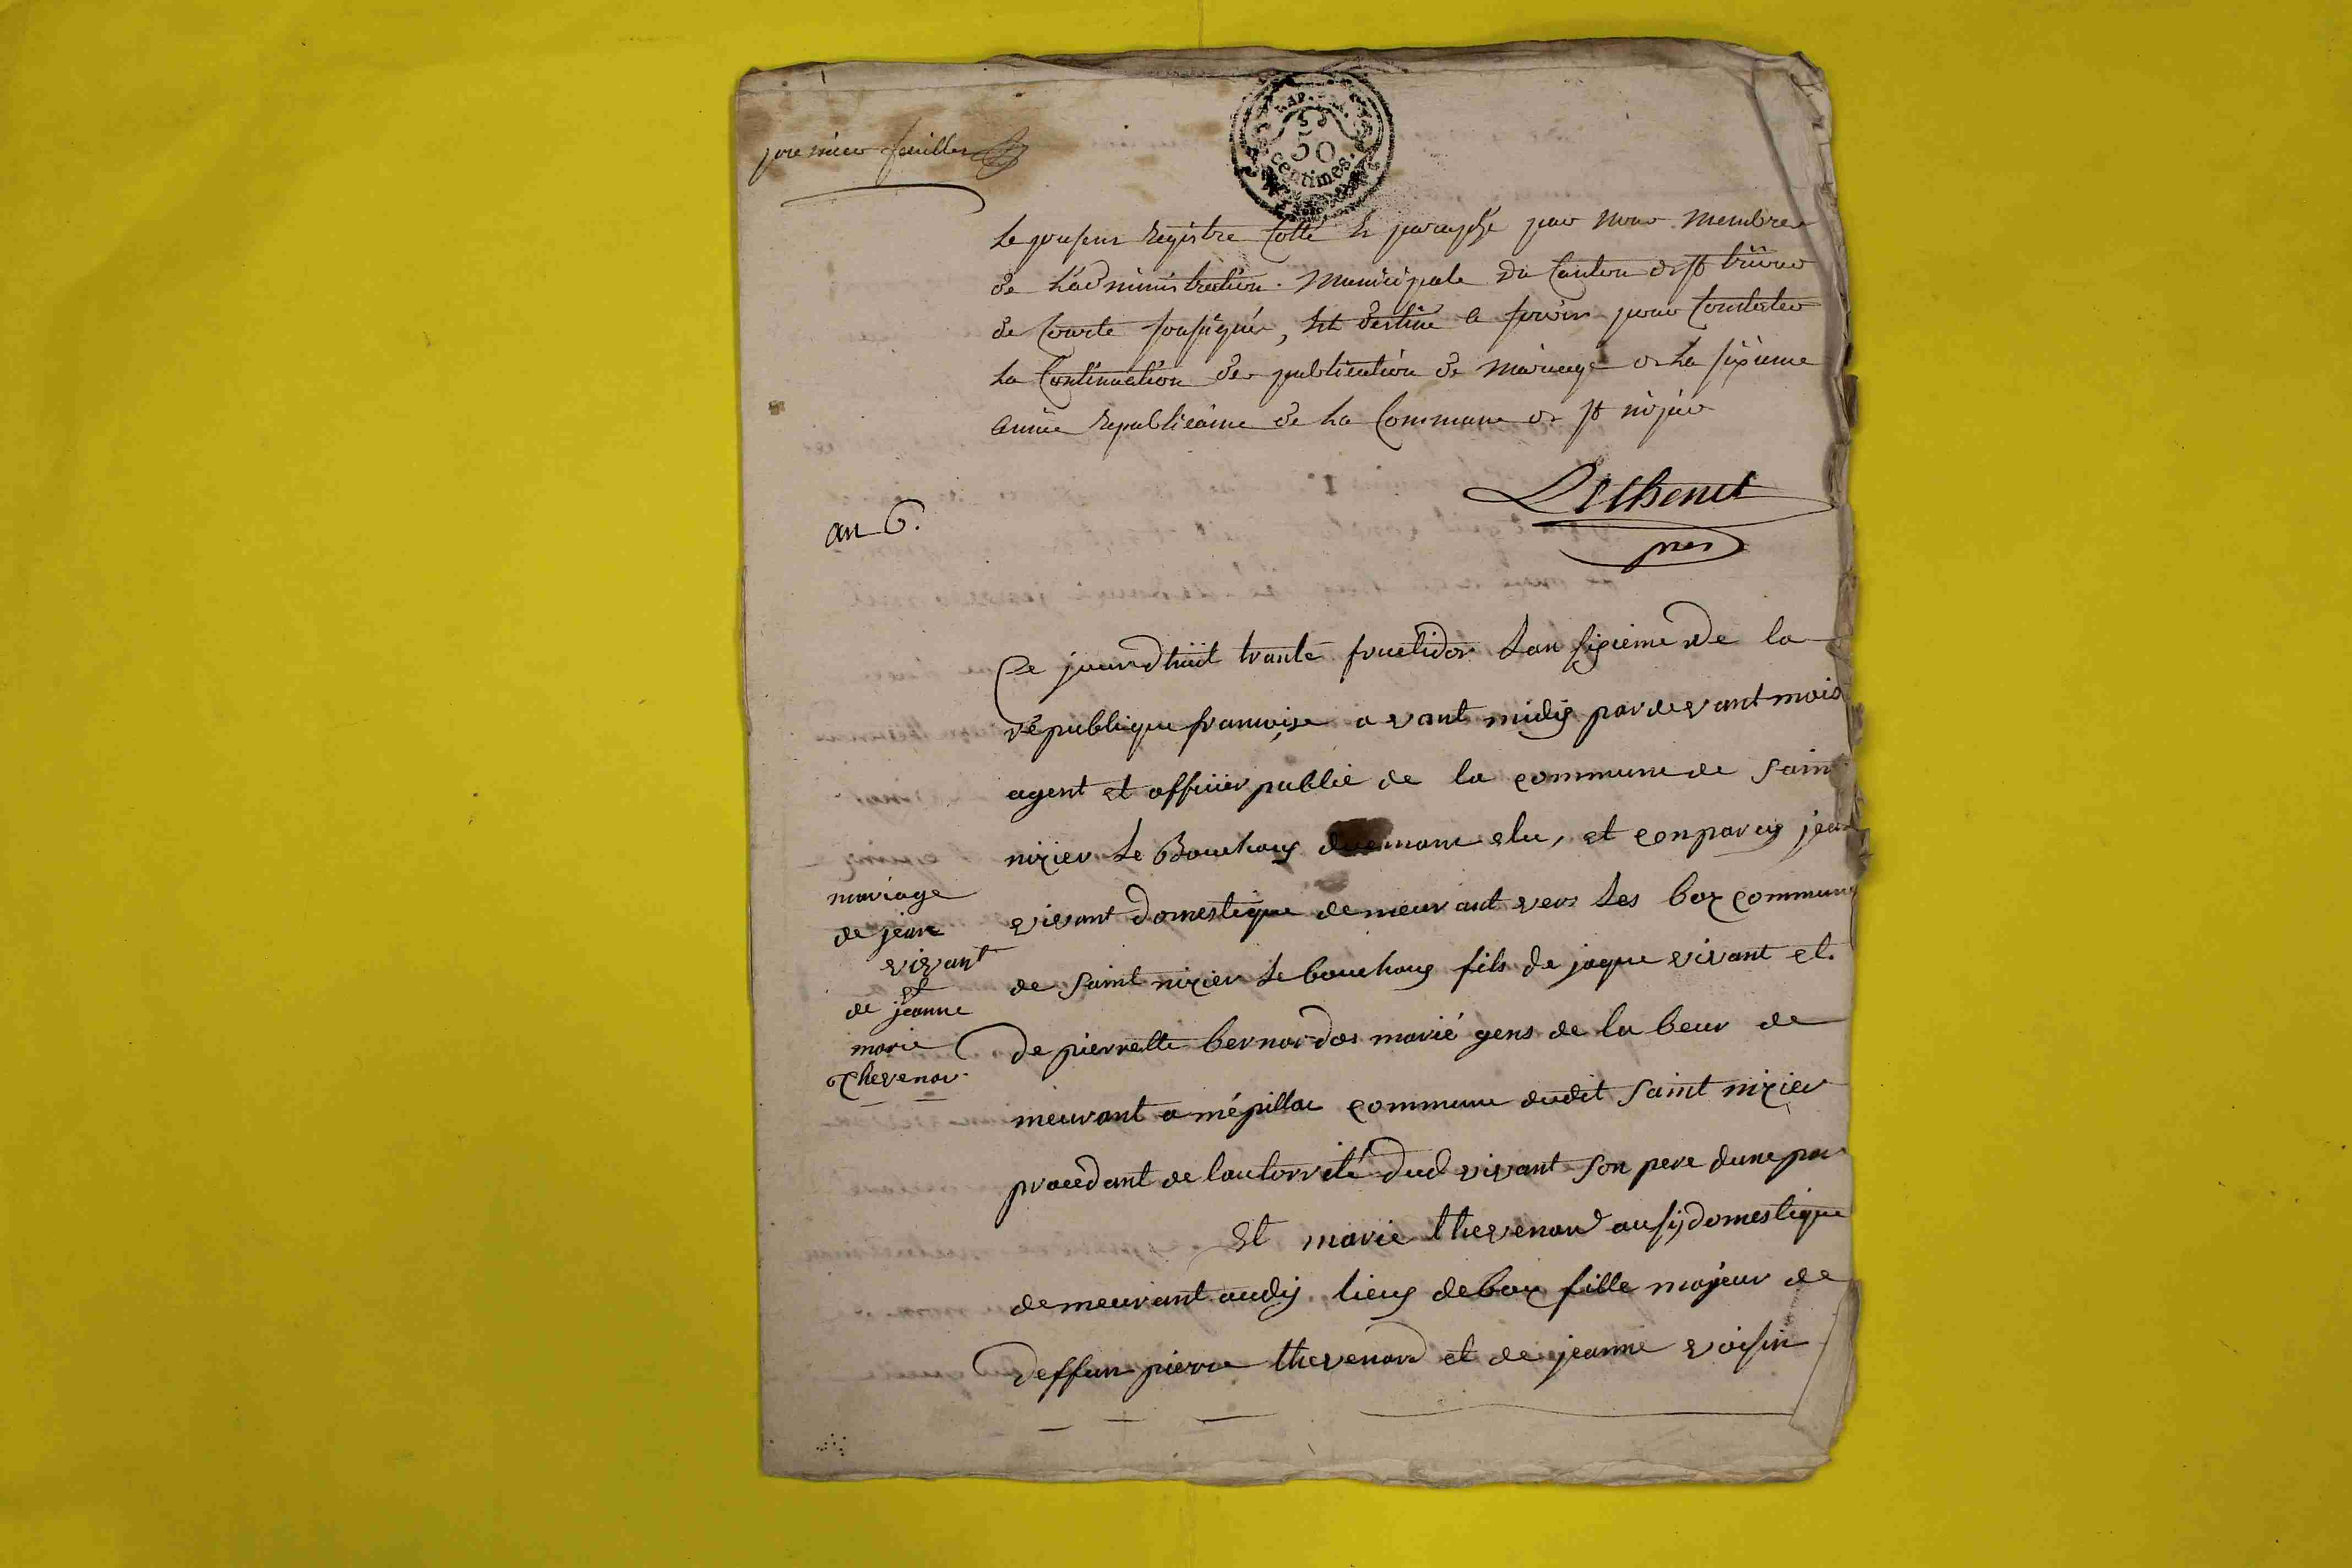 premier feuillet
50
centimes.
Le present Registre Cotté et paraphé par Nous Membres
de L'administration Municipale du Canton de St trivier
de Courte soussignés, Est destiné a servir pour Constater
La Continuation des publication de Mariage de La sixieme
année Republicaine de La Commune de St nizier
an 6.
pres
Ce jourdhuit trante fructidor Lan sixieme de la
république francoise avant midis pardevant mois
agent et officier public de la commune de Saint
nizier Le Bouchoux elu, et conparus jean
vivant domestique demeurant vers Les boz commune
de Saint nizier Le bouchoux fils de jaque vivant et
de pierrette bernardas marié gens de la beur de
meurant a mépillac commune dudit Saint nizier
procedant de lautorrité dud vivant son pere dune par
Et marie thevenard aussy domestique
demeurant audis lieux de boz fille majeur de
deffun pierre thevenard et de jeanne voisin
mariage
de jean
vivant
et
de jeanne
marie
thevenar